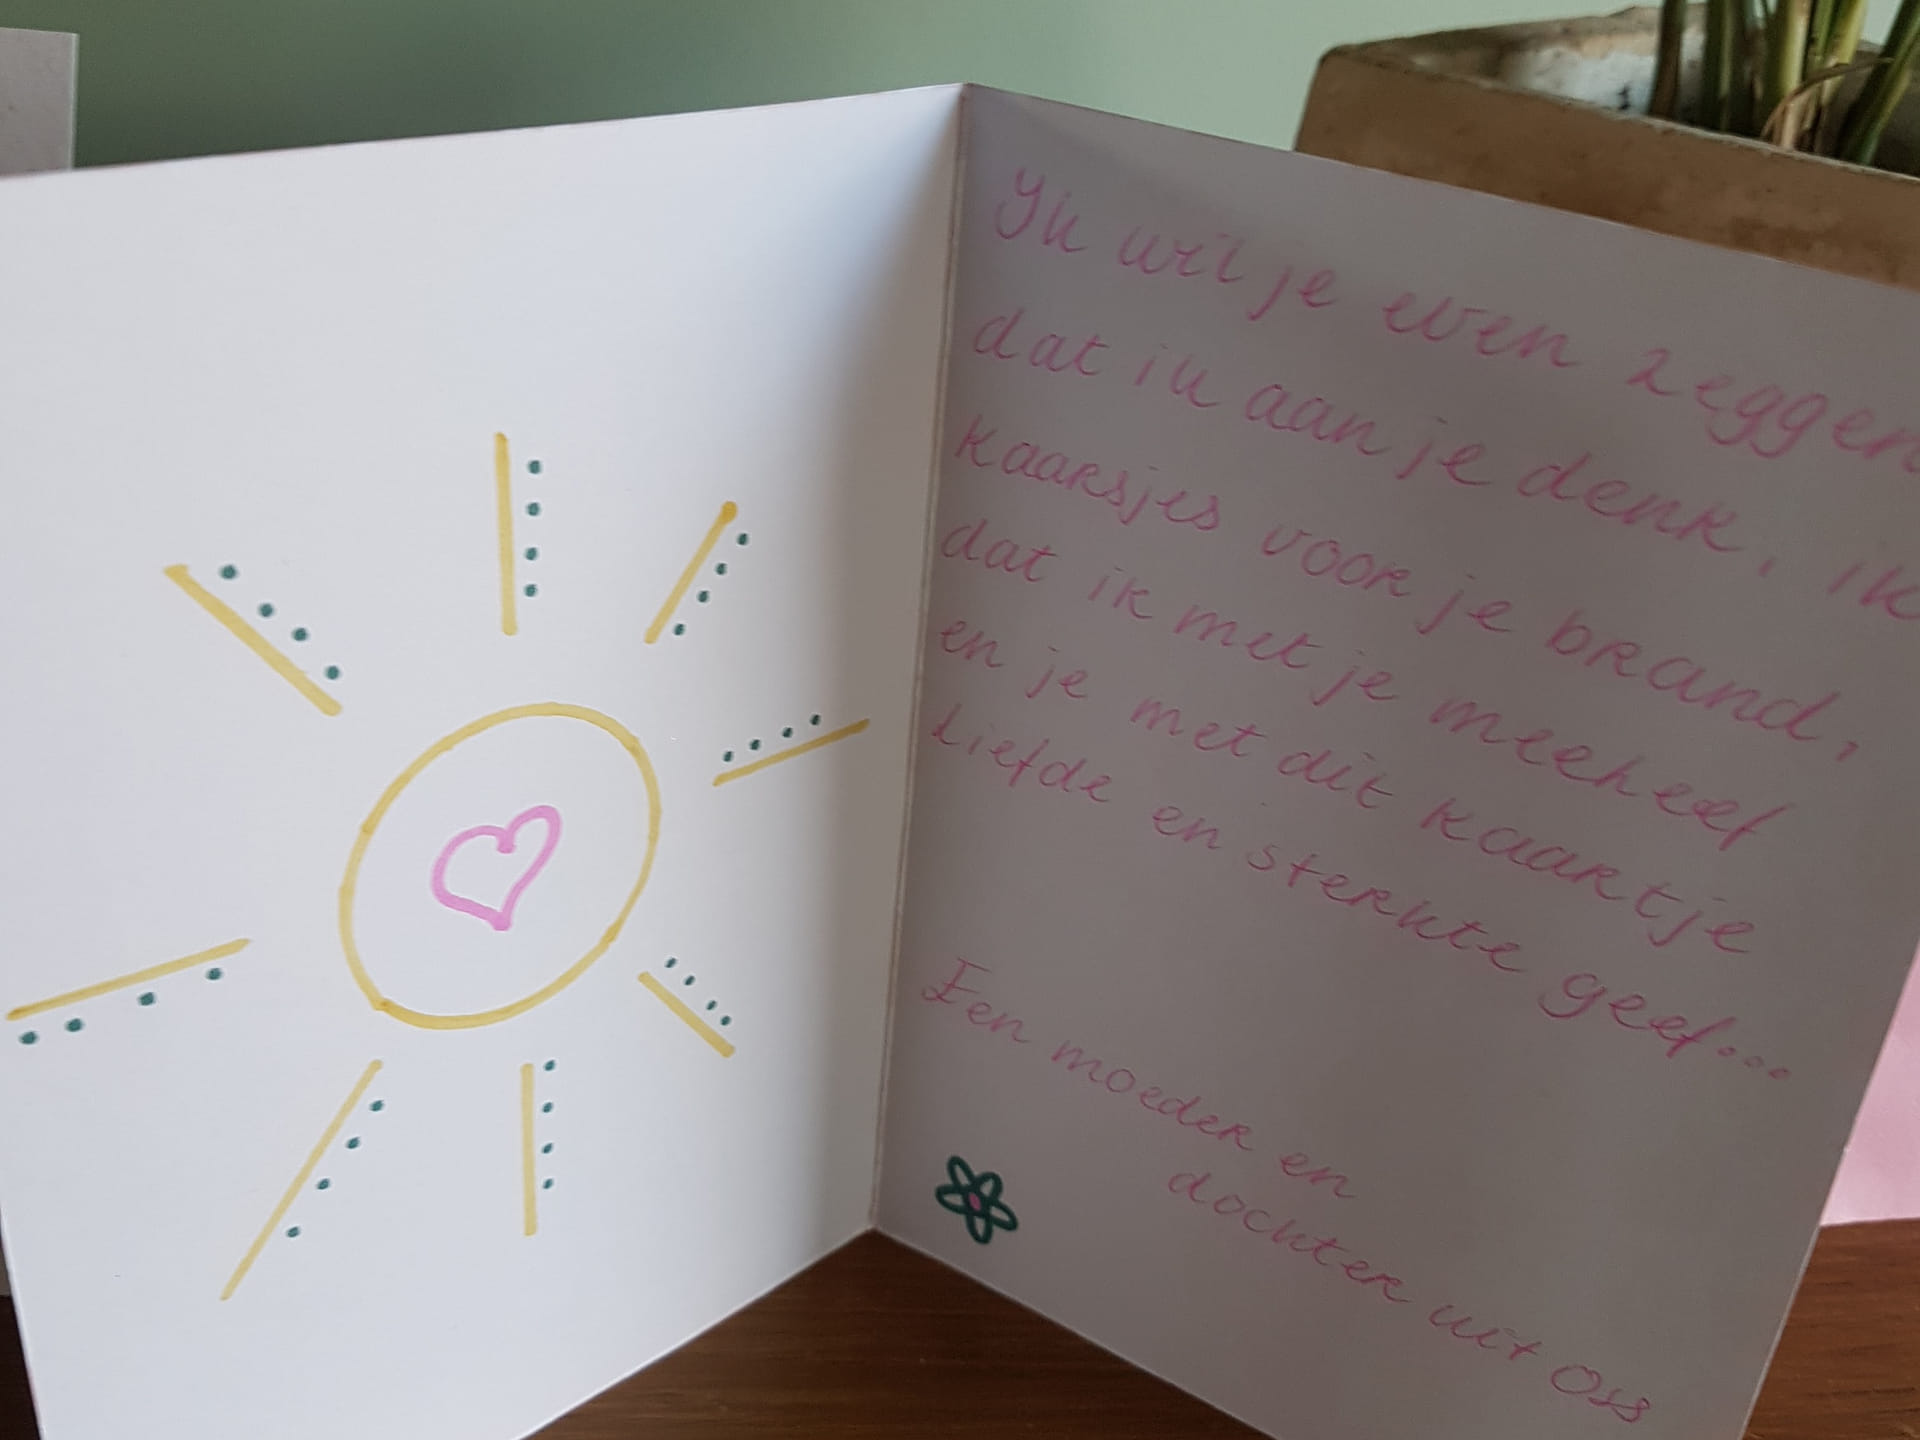 Ik wil je even zeggen
dat ik aan je denk, ik
kaarsjes voor je brand,
dat ik met je meeheef
en je met dit kaartje
liefde en sterkte geef...
Een moeder en
dochter uit Oss